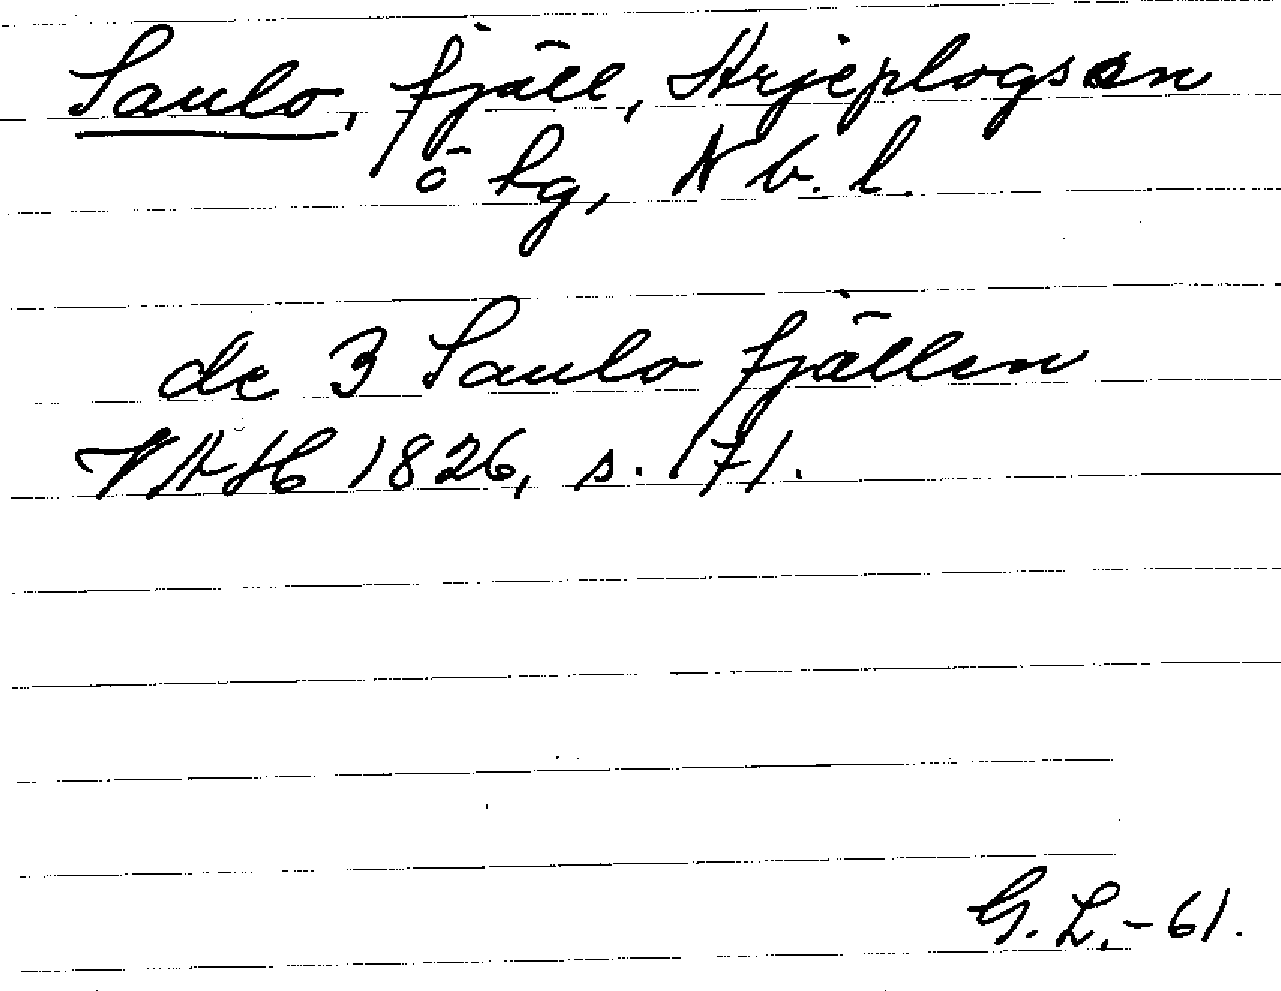 Saulo, fjäll, Arjeplogs sn
ö hg, Nb. l.
de 3 Saulo fjällen
VAH 1826, s. 171.
G. L. -61.